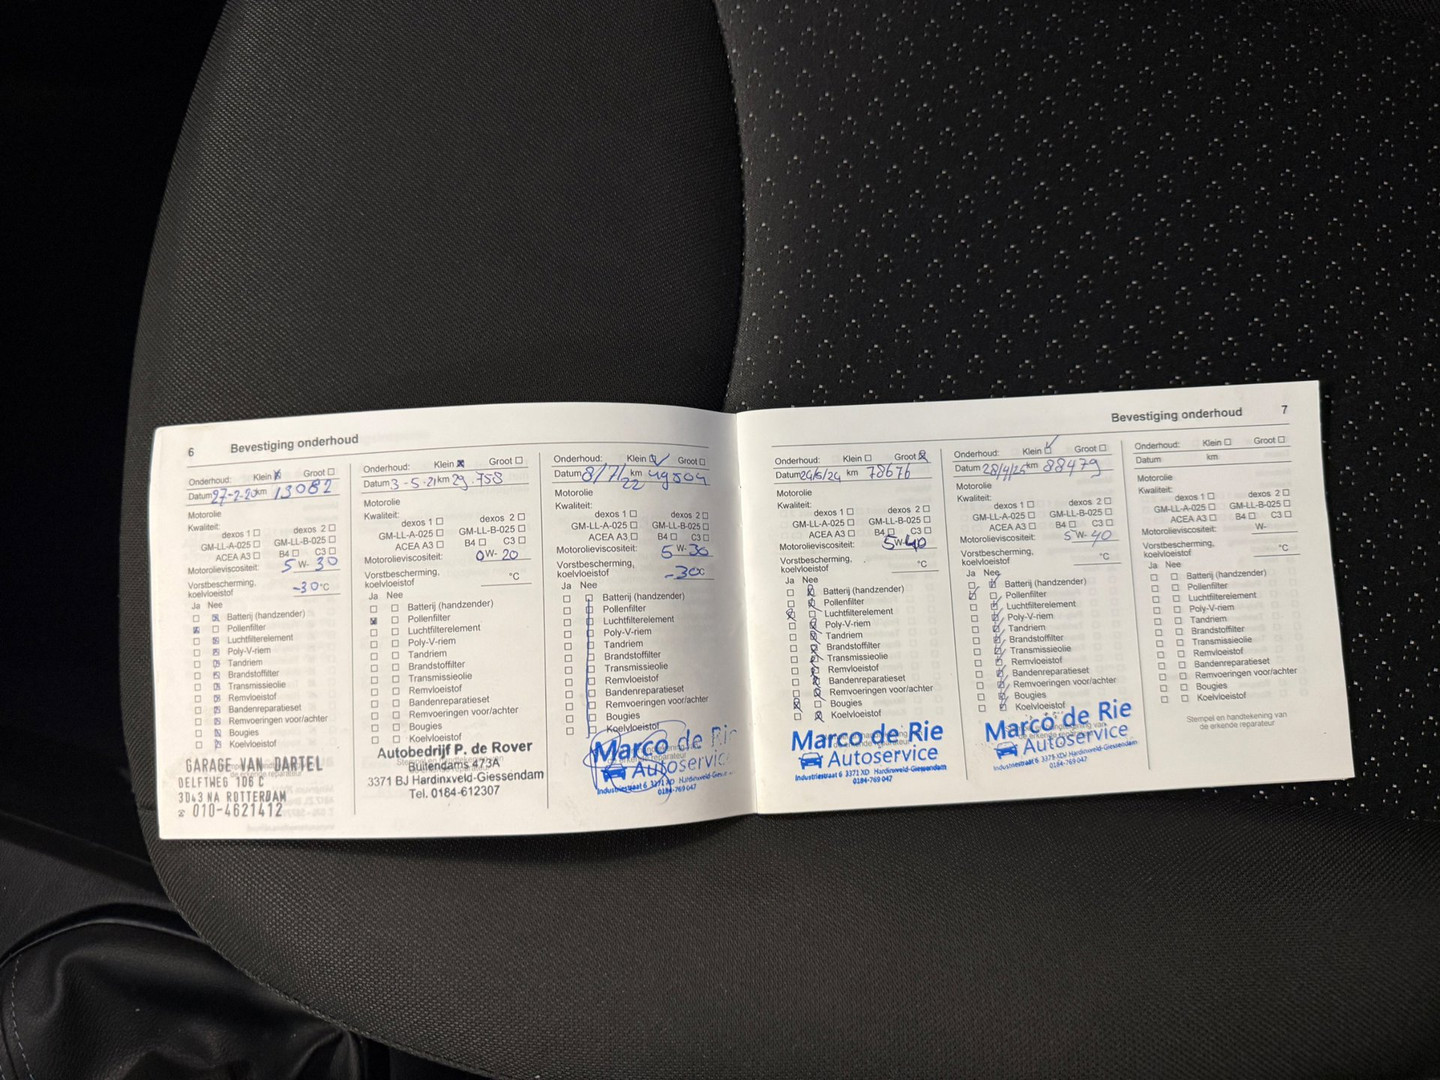 6 Bevestiging onderhoud
Onderhoud: Klein Groot
Datum 27-2-20 km 13082
Motorolie
Kwaliteit:
dexos 1 dexos 2
GM-LL-A-025 GM-LL-B-025
ACEA A3 B4 C3
Motorolieviscositeit: 5 W- 30
Vorstbescherming,
koelvloeistof -30 °C
Ja Nee
Batterij (handzender)
Pollenfilter
Luchtfilterelement
Poly-V-riem
Tandriem
Brandstoffilter
Transmissieolie
Remvloeistof
Bandenreparatieset
Remvoeringen voor/achter
Bougies
Koelvloeistof
GARAGE VAN DARTEL
DELFTWEG 106 C
3043 NA ROTTERDAM
010-4621412
Onderhoud: Klein Groot
Datum 3-5-21 km 29.758
Motorolie
Kwaliteit:
dexos 1 dexos 2
GM-LL-A-025 GM-LL-B-025
ACEA A3 B4 C3
Motorolieviscositeit: 0 W- 20
Vorstbescherming,
koelvloeistof °C
Ja Nee
Batterij (handzender)
Pollenfilter
Luchtfilterelement
Poly-V-riem
Tandriem
Brandstoffilter
Transmissieolie
Remvloeistof
Bandenreparatieset
Remvoeringen voor/achter
Bougies
Koelvloeistof
Autobedrijf P. de Rover
Buitendams 473A
3371 BJ Hardinxveld-Giessendam
Tel. 0184-612307
Onderhoud: Klein Groot
Datum 8/7/22 km 49504
Motorolie
Kwaliteit:
dexos 1 dexos 2
GM-LL-A-025 GM-LL-B-025
ACEA A3 B4 C3
Motorolieviscositeit: 5 W- 30
Vorstbescherming,
koelvloeistof -30c
Ja Nee
Batterij (handzender)
Pollenfilter
Luchtfilterelement
Poly-V-riem
Tandriem
Brandstoffilter
Transmissieolie
Remvloeistof
Bandenreparatieset
Remvoeringen voor/achter
Bougies
Koelvloeistof
Marco de Rie
Autoservice
Industriestraat 6 3371 XD Hardinxveld-
0184-769 047
Bevestiging onderhoud 7
Onderhoud: Klein Groot
Datum 24/5/24 km 78676
Motorolie
Kwaliteit:
dexos 1 dexos 2
GM-LL-A-025 GM-LL-B-025
ACEA A3 B4 C3
Motorolieviscositeit: 5 W- 40
Vorstbescherming,
koelvloeistof °C
Ja Nee
Batterij (handzender)
Pollenfilter
Luchtfilterelement
Poly-V-riem
Tandriem
Brandstoffilter
Transmissieolie
Remvloeistof
Bandenreparatieset
Remvoeringen voor/achter
Bougies
Koelvloeistof
Marco de Rie
Autoservice
Industriestraat 6 3371 XD Hardinxveld-Giessendam
0184-769 047
Onderhoud: Klein Groot
Datum 28/4/25 km 88479
Motorolie
Kwaliteit:
dexos 1 dexos 2
GM-LL-A-025 GM-LL-B-025
ACEA A3 B4 C3
Motorolieviscositeit: 5 W- 40
Vorstbescherming,
koelvloeistof °C
Ja Nee
Batterij (handzender)
Pollenfilter
Luchtfilterelement
Poly-V-riem
Tandriem
Brandstoffilter
Transmissieolie
Remvloeistof
Bandenreparatieset
Remvoeringen voor/achter
Bougies
Koelvloeistof
Marco de Rie
Autoservice
Industriestraat 6 3371 XD Hardinxveld-Giessendam
0184-769 047
Onderhoud: Klein Groot
Datum km
Motorolie
Kwaliteit:
dexos 1 dexos 2
GM-LL-A-025 GM-LL-B-025
ACEA A3 B4 C3
Motorolieviscositeit: W-
Vorstbescherming,
koelvloeistof °C
Ja Nee
Batterij (handzender)
Pollenfilter
Luchtfilterelement
Poly-V-riem
Tandriem
Brandstoffilter
Transmissieolie
Remvloeistof
Bandenreparatieset
Remvoeringen voor/achter
Bougies
Koelvloeistof
Stempel en handtekening van
de erkende reparateur